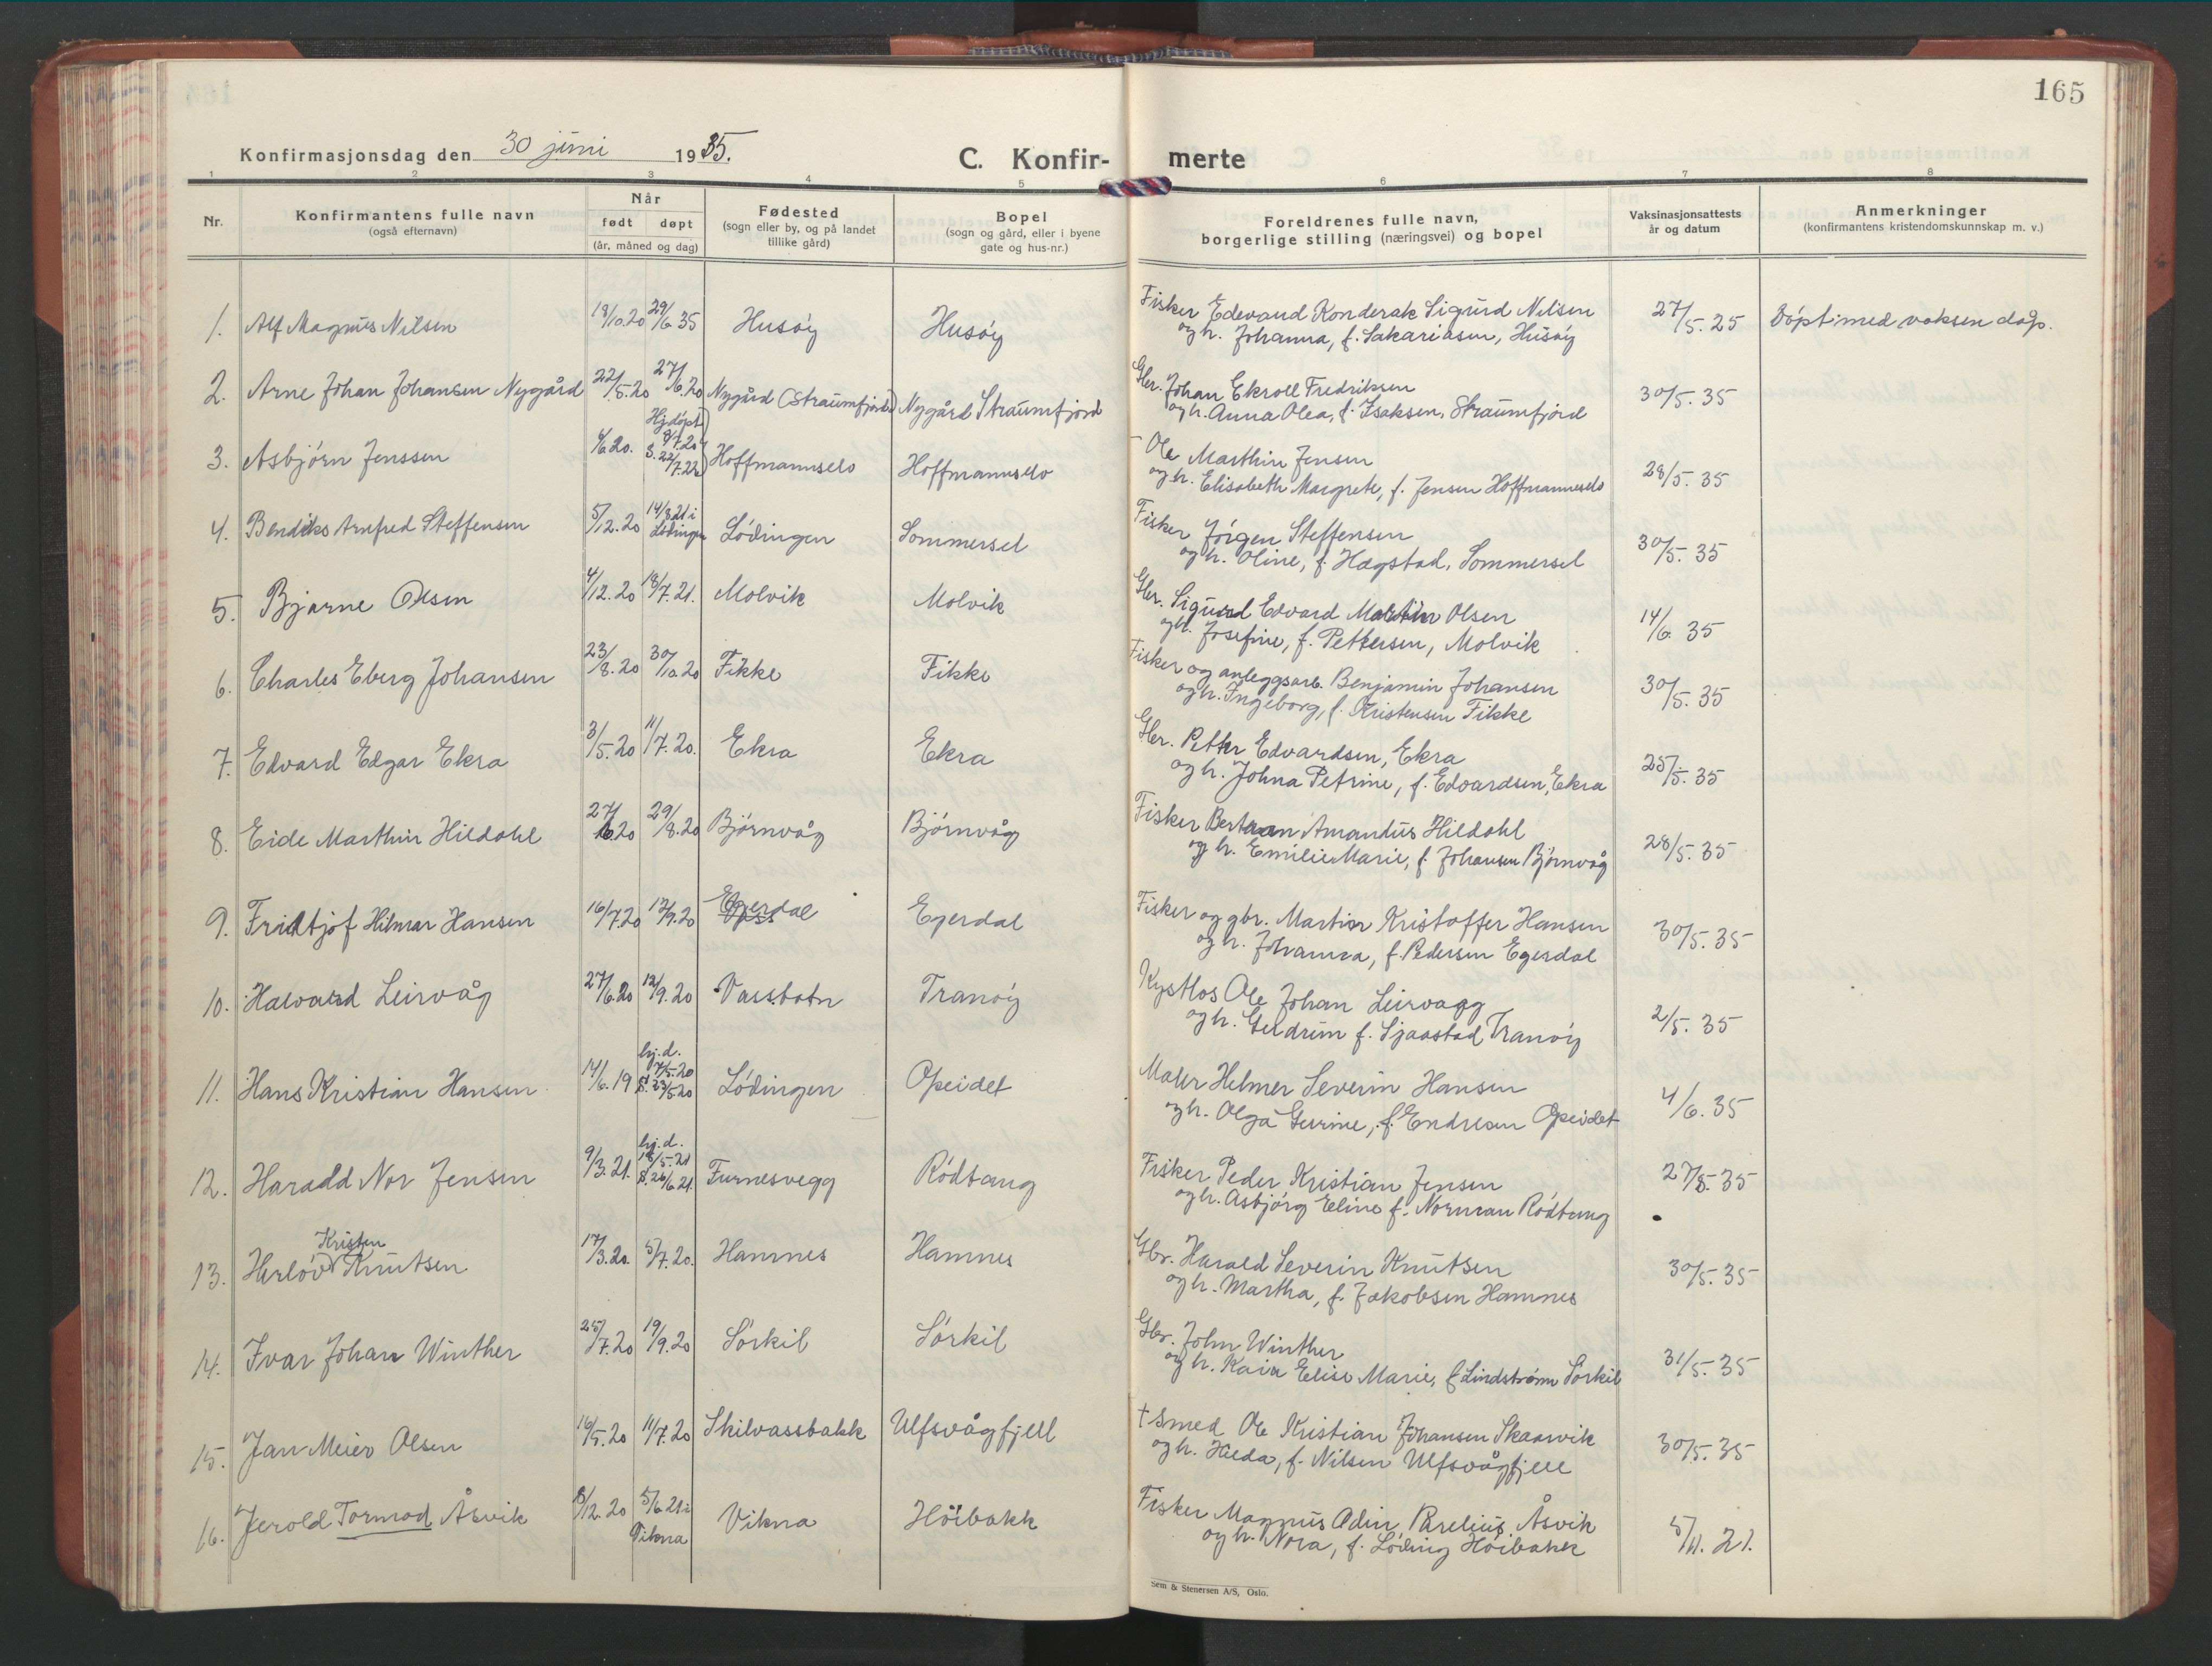 165
Konfirmasjonsdag den 30 juni 1935.
C. Konfir- merte
1 2 3 4 5 6 7 8
Nr.
Konfirmantens fulle navn
(også efternavn)
Når
født døpt
(år, måned og dag)
Fødested
(sogn eller by, og på landet
tillike gård)
Bopel
(sogn og gård, eller i byene
gate og hus-nr.)
Foreldrenes fulle navn,
borgerlige stilling (næringsvei) og bopel
Vaksinasjonsattests
år og datum
Anmerkninger
(konfirmantens kristendomskunnskap m. v.)
1. Alf Magnus Nilsen 18/10.20 29/6 35 Husöy Husöy
Fisker Edevard Konderak Sigurd Nilsen
og h. Johanna, f. Sakariasen, Husöy
27/5. 25 Döpt med voksen dåp.
2. Arne Johan Johansen Nygård 22/5.20 27/6.20 Nygård (Straumfjord) Nygård Straumfjord
Gbr. Johan Ekroll Fredriksen
og h. Anna Olea, f. Isaksen, Straumfjord
30/5. 35
3. Asbjörn Jenssen 4/6 20. Hj.döpt 8/7.20 S. 22/7.22 Hoffmannselv Hoffmannselv
- Ole Marthin Jensen
og h. Elisabeth Margrete, f. Jensen Hoffmannselv
28/5. 35
4. Bendiks Arnfred Steffensen 5/12.20 14/8.21 i Lödingen Lödingen Sommersel
Fisker Jörgen Steffensen
og h. Oline, f. Hægstad, Sommersel
30/5. 35
5. Bjarne Olsen 4/12.20 18/7.21. Molvik Molvik
Gbr. Sigurd Edvard Martin Olsen
og h. Josefine, f. Pettersen, Molvik
14/6. 35
6. Charles Eberg Johansen 23/8.20 30/10.20 Fikke Fikke
Fisker og anleggsarb. Benjamin Johansen
og h. Ingeborg, f. Kristensen Fikke
30/5. 35
7. Edvard Edgar Ekra 3/5.20 11/7.20. Ekra Ekra
Gbr. Petter Edvardsen, Ekra
og h. Johna Petrine, f. Edvardsen, Ekra
25/5. 35
8. Eide Marthin Hildahl 27/6.20 29/8.20 Björnvåg Björnvåg
Fisker Amandus Hildahl
og h. Emilie Marie, f. Johansen Björnvåg
28/5. 35
9. Fridtjof Hilmar Hansen 16/7.20 12/9.20 Egerdal Egerdal
Fisker og gbr. Martin Kristoffer Hansen
og h. Johanna, f. Pedersen Egerdal
30/5. 35
10. Halvard Leirvåg 27/6.20 12/9.20 Vassbotn Tranöy
Kystlos Ole Johan Leirvaag
og h. f. Sjaastad Tranöy
2/5. 35
11. Hans Kristian Hansen 14/6.19 hj.d. 17/5.20 S. 23/5.20 Lödingen Opeidet
Maler Helmer Severin Hansen
og h. Olga Gurine, f. Endresen Opeidet
4/6. 35
12. Harald Nor Jensen 9/3.21. hj.d. 18/5.21 S. 26/6 21. Furnesvegg Rödtang
Fisker Peder Kristian Jensen
og h. Asbjörg Eline f. Norman Rödtang
27/5. 35
13. Herlöv Kristen Knutsen 17/3.20. 5/7.20. Hamnes Hamnes
Gbr. Harald Severin Knutsen
og h. Martha, f. Jakobsen Hamnes
30/5. 35
14. Ivar Johan Winther 25/7.20 19/9.20 Sörkil Sörkil
Gbr. John Winther
og h. Kaia Elise Marie, f. Lindström Sörkil
31/5. 35
15. Jan Meier Olsen 16/5.20 11/7.20 Skilvassbakk Ulfsvågfjell
† Smed Ole Kristian Johansen Skaarvik
og h. Hilda, f. Nilsen Ulfsvågfjell
30/5. 35
16. Jerold Tormod Åsvik 8/12.20 5/6 21 i Vikna Vikna Höibakk
Fisker Magnus Odin Parelius Åsvik
og h. Nora, f. Löding Höibakk
5/11. 21.
Sem & Stenersen A/S, Oslo.